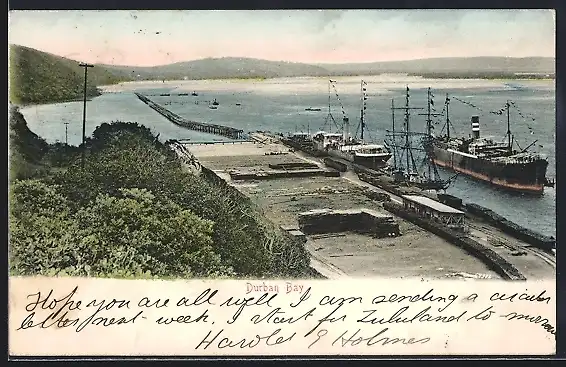 Durban Bay
Hope you are all well, I am sending a circular
letter next week. I start for Zululand to-morrow
Harold G Holmes